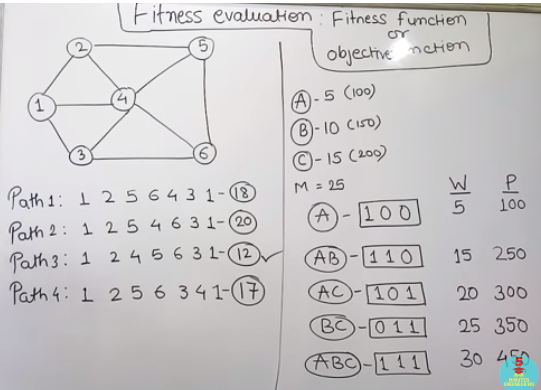 Fitness evaluation : Fitness function
or
objective function
1
2
3
4
5
6
Path 1: 1 2 5 6 4 3 1 - 18
Path 2: 1 2 5 4 6 3 1 - 20
Path 3: 1 2 4 5 6 3 1 - 12 ✓
Path 4: 1 2 5 6 3 4 1 - 17
A - 5 (100)
B - 10 (150)
C - 15 (200)
M = 25
W P
A - 1 0 0 5 100
AB - 1 1 0 15 250
AC - 1 0 1 20 300
BC - 0 1 1 25 350
ABC - 1 1 1 30 450
5